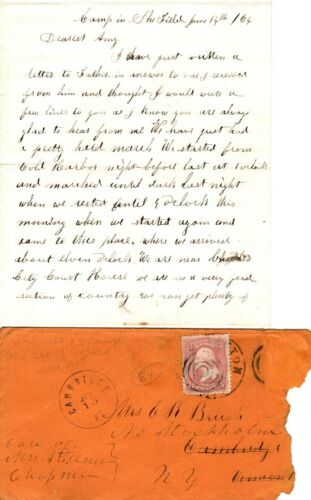 Camp in The Field June 14th /64
Dearest Amy.
I have just written a
letter to Father in answer to one I received
from him and thought I would write a
few lines to you as I know you are always
glad to hear from me We have just had
a pretty hard march We started from
Cold Harbor night before last at o'clock
and marched until dark last night
when we rested until 5 o'clock this
morning when we started again and
came to this place, where we arrived
about eleven o'clock We are near
City Court House we are in a very good
section of country we can get plenty of
CAMBRIDGE
Mrs C R Brush
No Stockholm
Cambridge
N Y Vermont
Care of
Mrs
Chapman